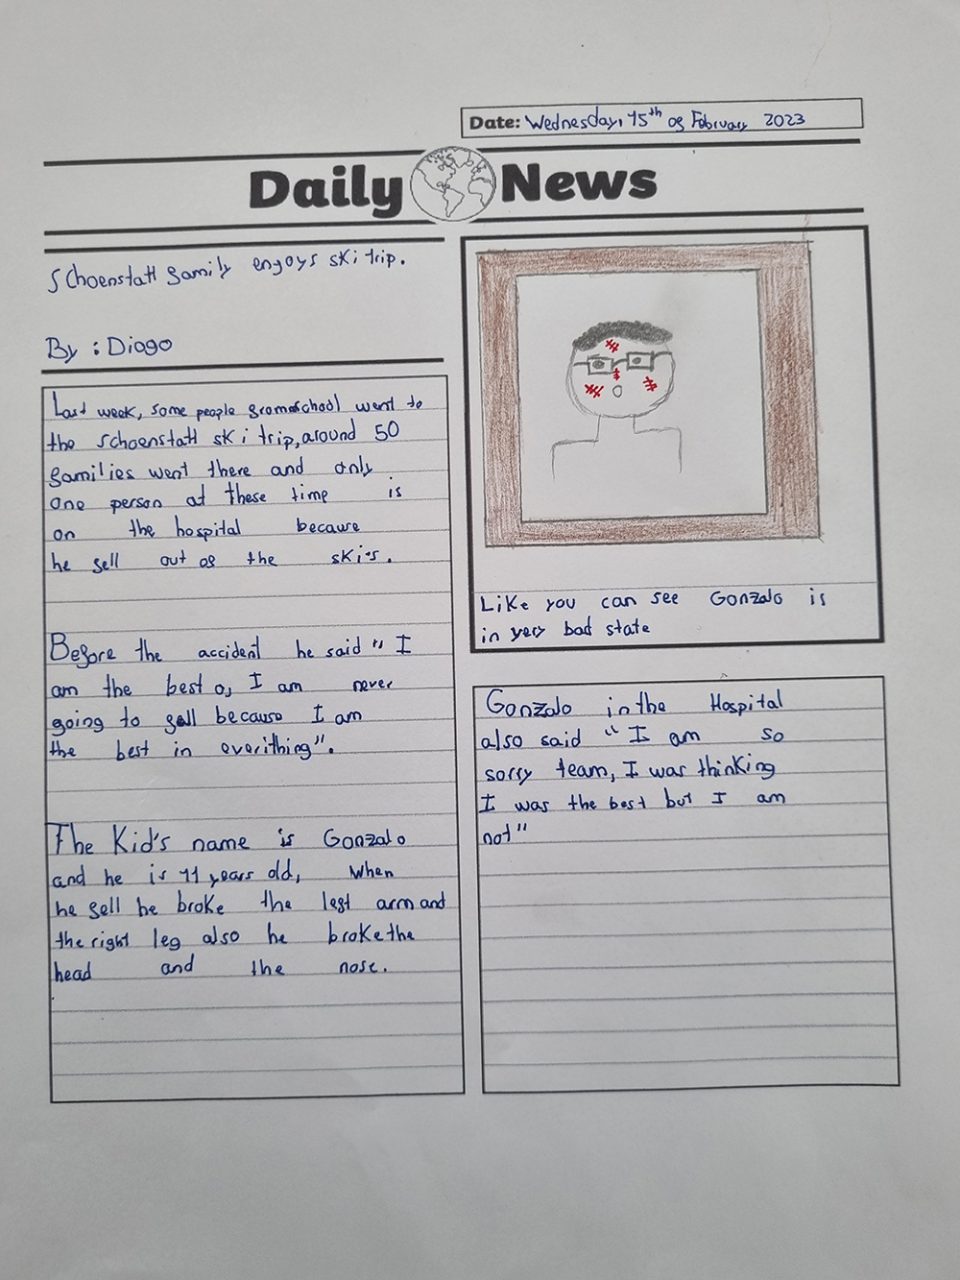 Date: Wednesday, 15th of February 2023
Daily News
Schoenstatt family enjoys ski trip.
By : Diogo
Last week, some people from school went to
the schoenstatt ski trip, around 50
families went there and only
one person at these time is
on the hospital because
he fell out of the ski's.
Before the accident he said " I
am the best of, I am never
going to fall because I am
the best in everithing".
The Kid's name is Gonzalo
and he is 11 years old, when
he fell he broke the left arm and
the right leg also he broke the
head and the nose.
Like you can see Gonzalo is
in very bad state
Gonzalo in the Hospital
also said " I am so
sorry team, I was thinking
I was the best but I am
not"